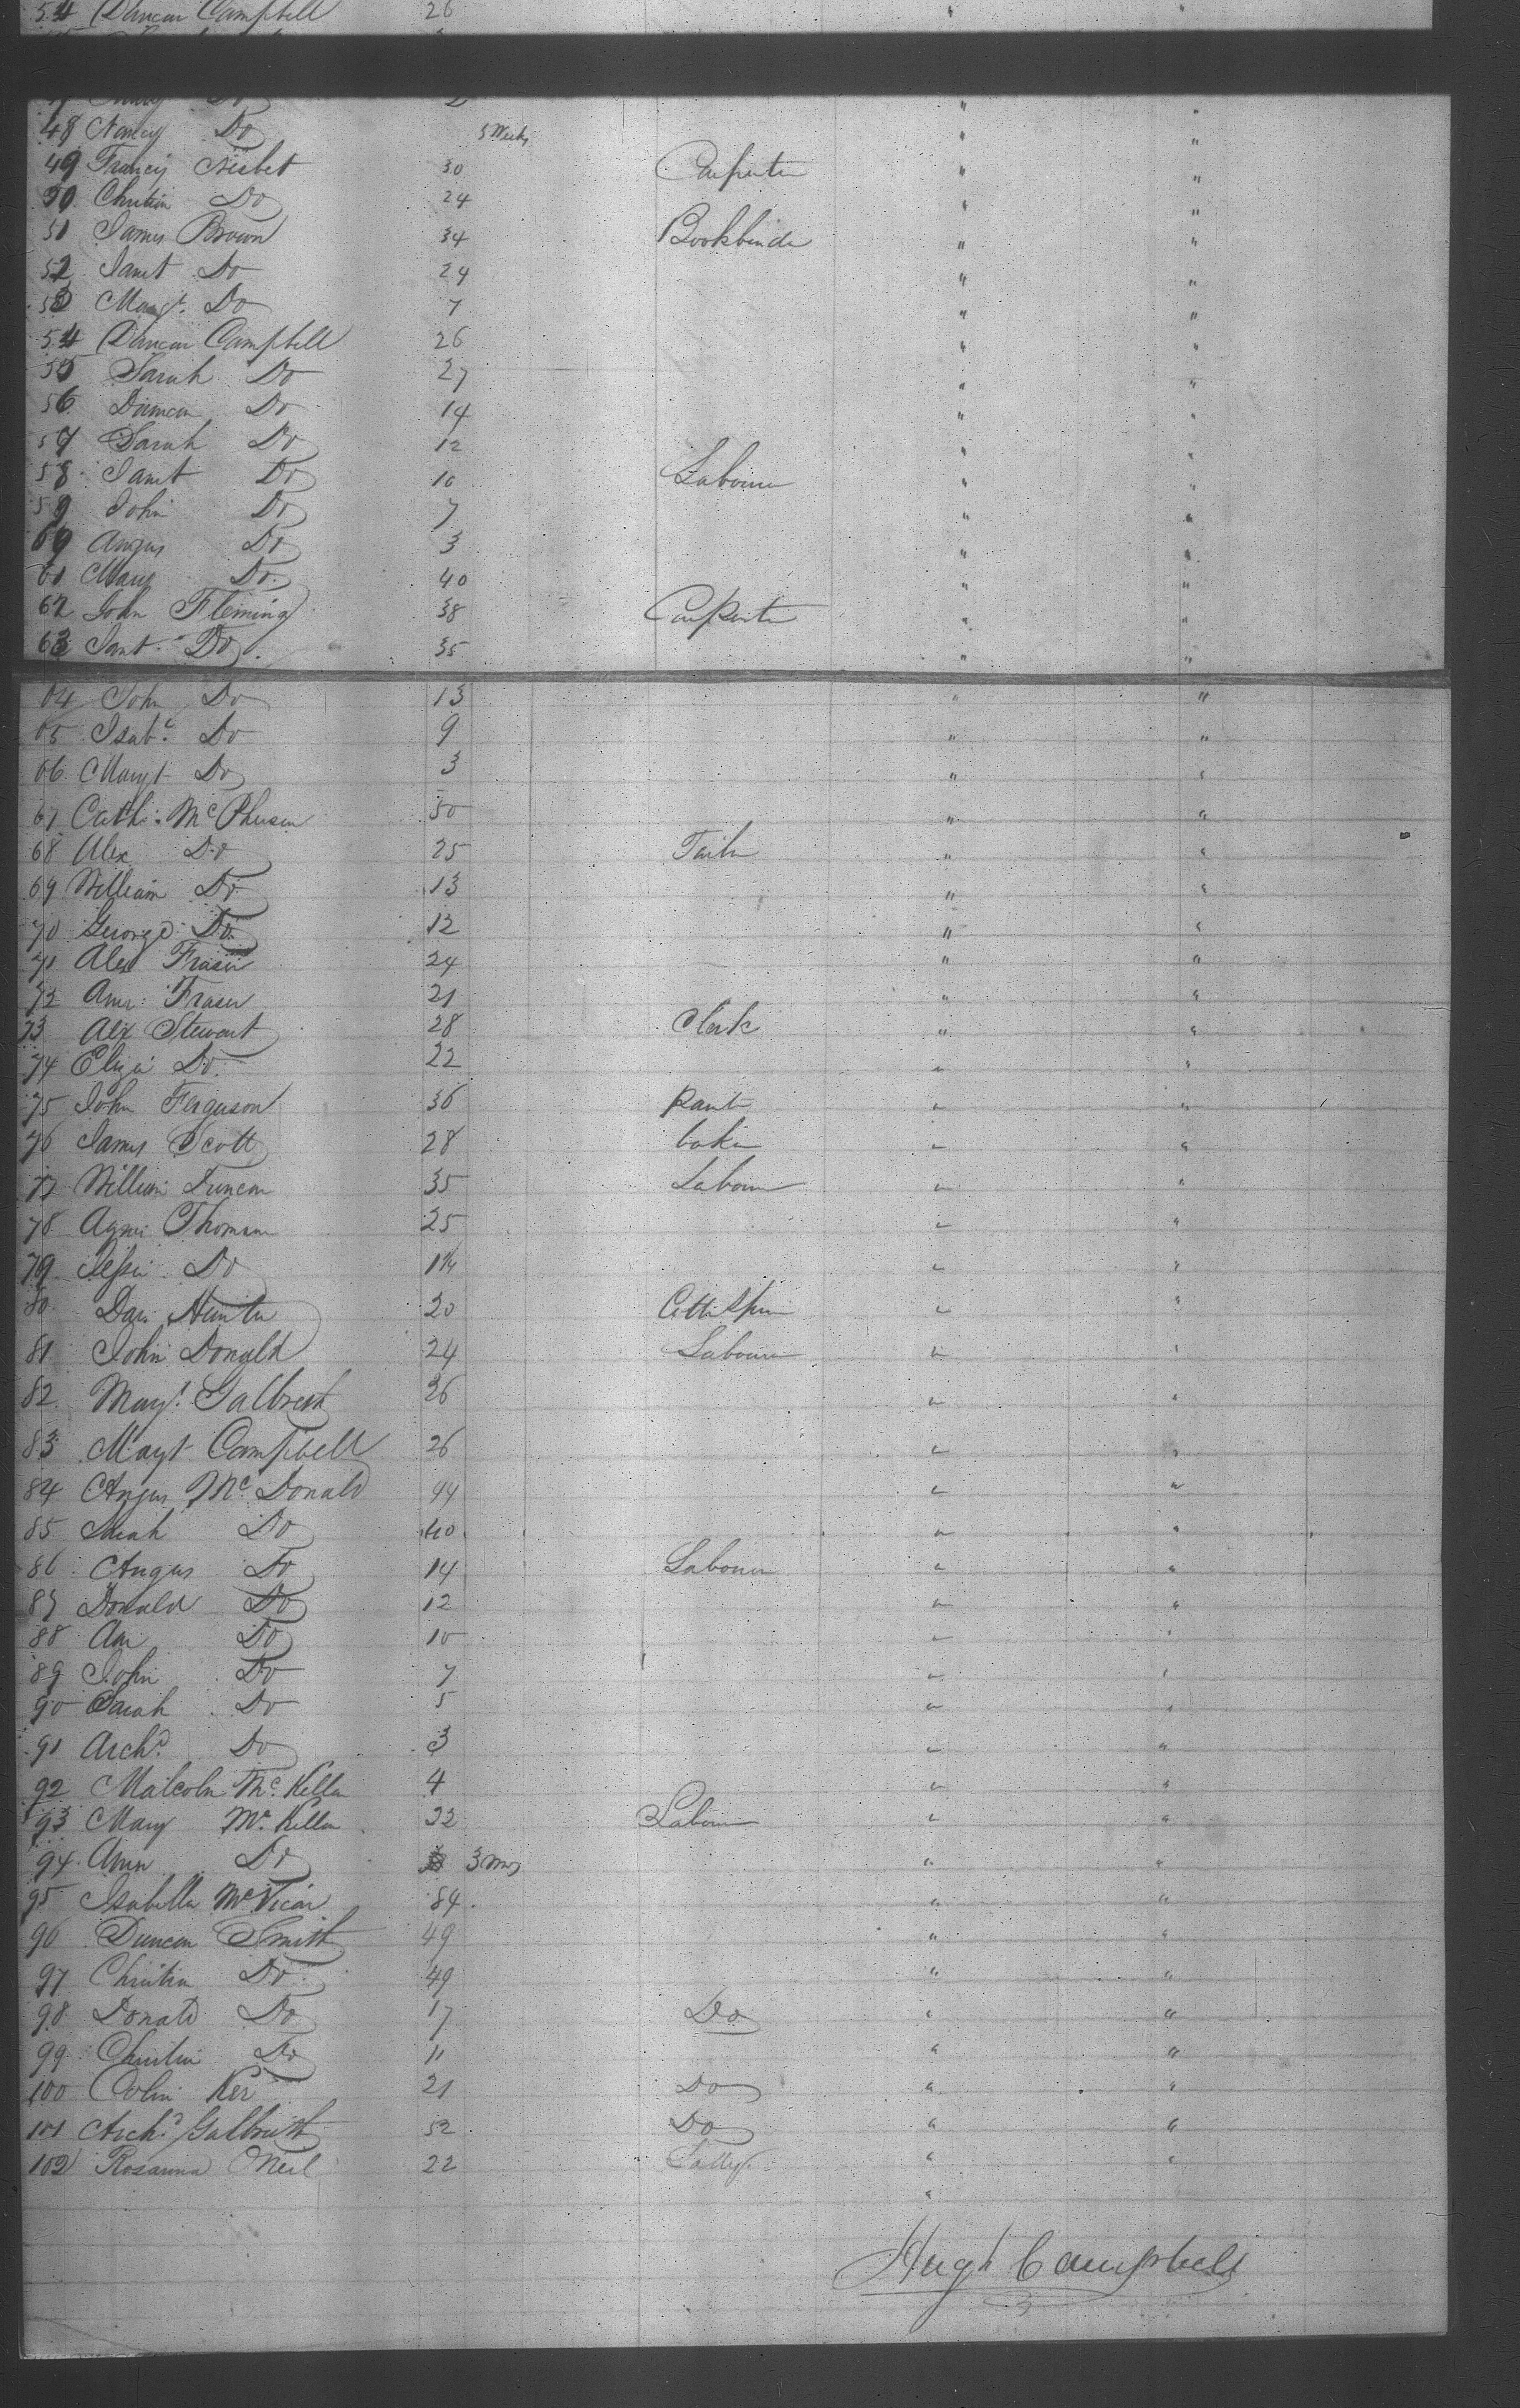 54 Duncan Campbell 26 " "
48 Nancy Do 3 Weeks " "
49 Francis Nisbet 30 Carpenter " "
50 Christin Do 24 " "
51 James Brown 34 Bookbinder " "
52 Janet Do 24 " "
53 Margt. Do 7 " "
54 Duncan Campbell 26 " "
55 Sarah Do 27 " "
56 Duncan Do 14 " "
57 Sarah Do 12 " "
58 Janet Do 10 Labourer " "
59 John Do 7 " "
60 Angus Do 3 " "
61 Mary Do. 40 " "
62 John Fleming 38 Carpenter " "
63 Jant. Do. 35 " "
64 John Do 13 " "
65 Isab. Do 9 " "
66 Margt Do 3 " "
67 Cath. McPherson 50 " "
68 Alex Do 25 Tailor " "
69 William Do 13 " "
70 George Do. 12 " "
71 Alex Fraser 24 " "
72 Fraser 21 " "
73 Alex Stewart 28 Clerk " "
74 Eliza Do. 22 " "
75 John Ferguson 36 " "
76 James Scott 28 baker " "
77 William Duncan 35 Labourer " "
78 Agnes Thomson 25 " "
79 Jessie Do 1¼ " "
80 Dan. Hunter 20 " "
81 John Donald 24 Labourer " "
82 Margt. Galbreath 26 " "
83 Margt Campbell 26 " "
84 Angus McDonald 44 " "
85 Sarah Do 40 " "
86 Angus Do 14 Labourer " "
87 Donald Do 12 " "
88 Ann Do 10 " "
89 John Do 7 " "
90 Sarah Do 5 " "
91 Archd. Do 3 " "
92 Malcolm McKellar 4 " "
93 Mary McKellar 22 Labourer " "
94 Ann Do 3 mos " "
95 Isabella McVicar 84 " "
96 Duncan Smith 49 " "
97 Christin Do 49 " "
98 Donald Do 17 Do " "
99 Christin Do 11 " "
100 Colin Ker 21 Do " "
101 Archd. Galbraith 52 Do " "
102 Rosanna ONeil 22 " "
"
Hugh Campbell